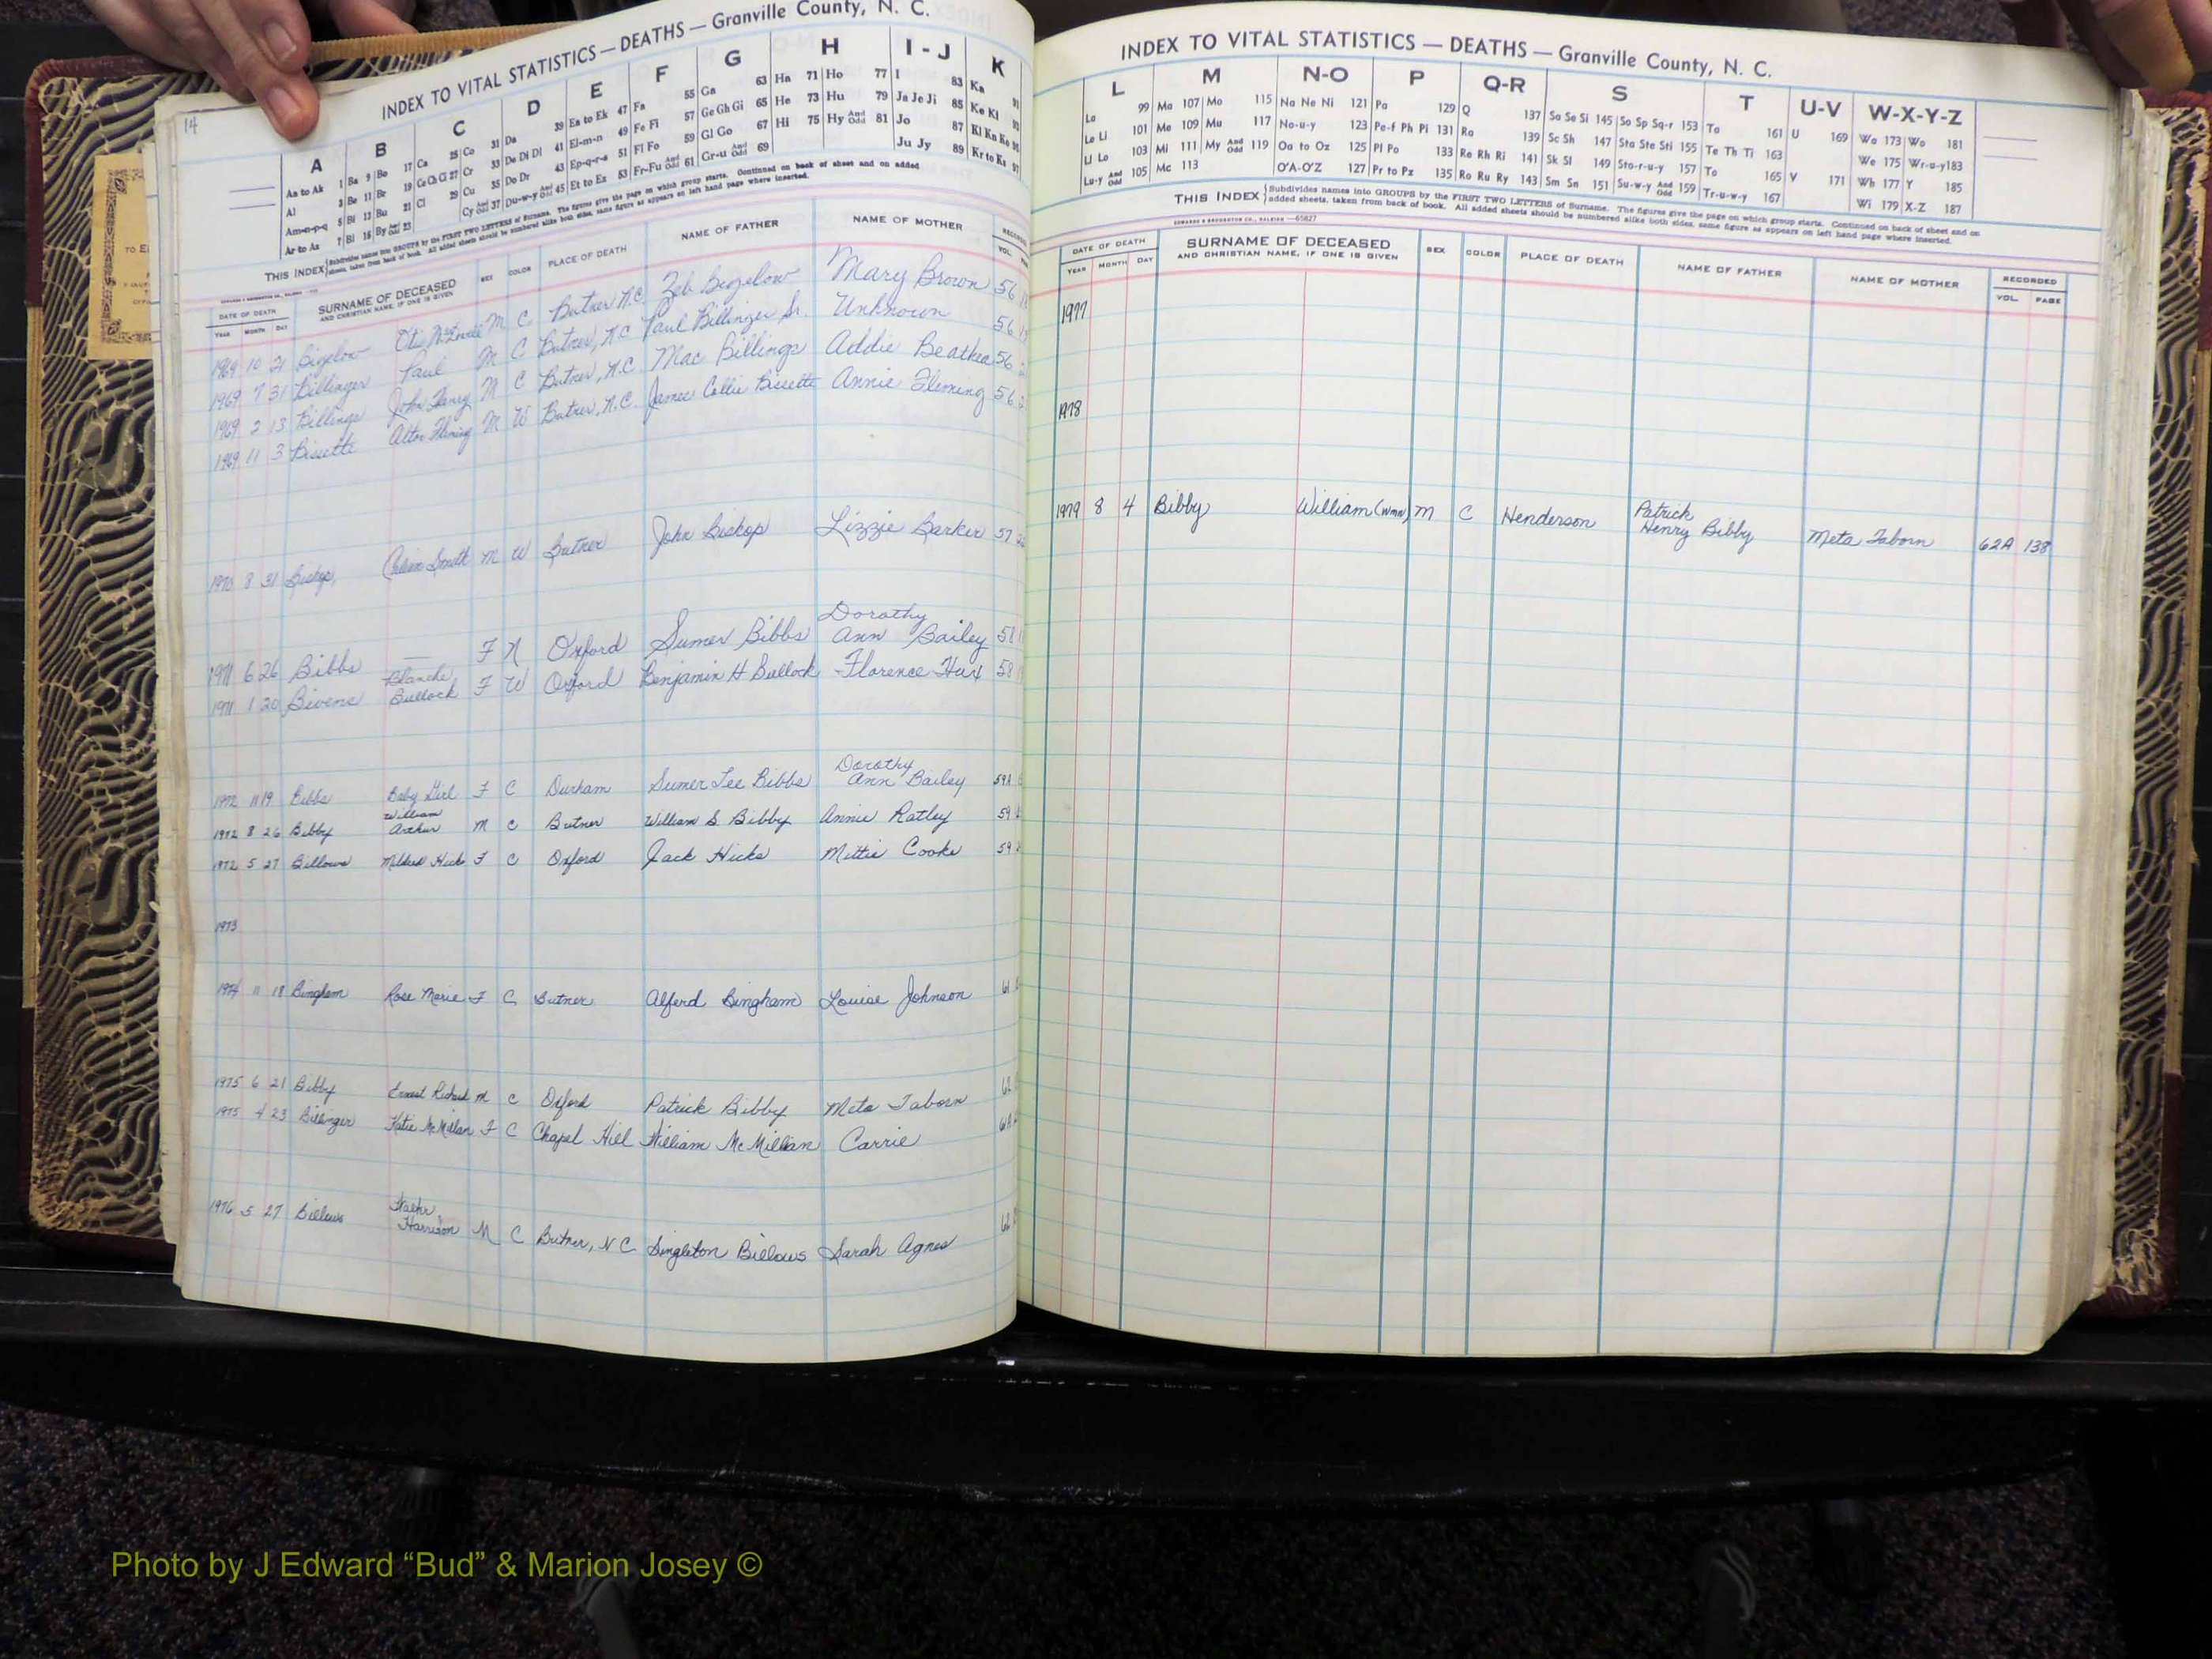 14
INDEX TO VITAL STATISTICS — DEATHS — Granville County, N. C.
A B C D E F G H I - J K
Aa to Ak 1 Ba 9 Bo 17 Ca 25 Co 31 Da 39 Ea to Ek 47 Fa 55 Ga 63 Ha 71 Ho 77 I 83 Ka
Al 3 Be 11 Br 19 Ce Ch Ci 27 Cr 33 De Di Dl 41 El-m-n 49 Fe Fi 57 Ge Gh Gi 65 He 73 Hu 79 Ja Je Ji 85 Ke Kl
Am-n-p-q 5 Bi 13 Bu 21 Cl 29 Cu 35 Do Dr 43 Ep-q-r-s 51 Fl Fo 59 Gl Go 67 Hi 75 Hy And Odd 81 Jo 87
Ar to Az 7 Bl 15 By And Odd 23 Cy And Odd 37 Du-w-y And Odd 45 Et to Ez 53 Fr-Fu And Odd 61 Gr-u And Odd 69 Ju Jy 89 Kr to Ks
THIS INDEX Subdivides names into GROUPS by the FIRST TWO LETTERS of Surname. The figures give the page on which group starts. Continued on back of sheet and on added
sheets, taken from back of book. All added sheets should be numbered alike both sides, same figure as appears on left hand page where inserted.
DATE OF DEATH SURNAME OF DECEASED SEX COLOR PLACE OF DEATH NAME OF FATHER NAME OF MOTHER
YEAR MONTH DAY AND CHRISTIAN NAME, IF ONE IS GIVEN VOL.
1969 10 21 Bigelow Otis M C Butner N.C. Zeb Bigelow Mary Brown 56
1969 7 31 Billinger Paul M C Butner, N.C Paul Billinger Sr. Unknown 56
1969 2 13 Billings John Henry M C Butner, N.C. Mac Billings Addie Beathea 56
1969 11 3 Bissette Alton Fleming M W Butner, N.C. James Collie Bissette Annie Fleming 56
1970 8 31 Bishop, Smith M W Butner John Bishop Lizzie Barker 57
1971 6 26 Bibbs — F N Oxford Sumer Bibbs Dorothy Ann Bailey 58
1971 1 20 Bivens Blanche Bullock F W Oxford Benjamin H Bullock Florence 58
1972 11 19 Bibbs Baby Girl F C Durham Sumer Lee Bibbs Dorothy Ann Bailey 59A
1972 8 26 Bibby William Arthur M C Butner William S. Bibby Annie Ratley 59
1972 5 27 Billows Mildred Hicks F C Oxford Jack Hicks Mittie Cooke 59
1973
1974 11 18 Bingham Rose Marie F C Butner Alferd Bingham Louise Johnson 61
1975 6 21 Bibby Ernest Richard M C Oxford Patrick Bibby Meta Taborn 62
1975 4 23 Billinger Katie McMillan F C Chapel Hill William McMillan Carrie 61A
1976 5 27 Billows Harrison M C Butner, NC Singleton Billows Sarah Agnes 62
INDEX TO VITAL STATISTICS — DEATHS — Granville County, N. C.
L M N-O P Q-R S T U-V W-X-Y-Z
La 99 Ma 107 Mo 115 Na Ne Ni 121 Pa 129 Q 137 Sa Se Si 145 So Sp Sq-r 153 Ta 161 U 169 Wa 173 Wo 181
Le Li 101 Me 109 Mu 117 No-u-y 123 Pe-f Ph Pi 131 Ra 139 Sc Sh 147 Sta Ste Sti 155 Te Th Ti 163 We 175 Wr-u-y 183
Ll Lo 103 Mi 111 My And Odd 119 Oa to Oz 125 Pl Po 133 Re Rh Ri 141 Sk Sl 149 Sto-r-u-y 157 To 165 V 171 Wh 177 Y 185
Lu-y And Odd 105 Mc 113 O'A-O'Z 127 Pr to Pz 135 Ro Ru Ry 143 Sm Sn 151 Su-w-y And Odd 159 Tr-u-w-y 167 Wi 179 X-Z 187
THIS INDEX Subdivides names into GROUPS by the FIRST TWO LETTERS of Surname. The figures give the page on which group starts. Continued on back of sheet and on
added sheets, taken from back of book. All added sheets should be numbered alike both sides, same figure as appears on left hand page where inserted.
EDWARDS & BROUGHTON CO., RALEIGH —65827
DATE OF DEATH SURNAME OF DECEASED SEX COLOR PLACE OF DEATH NAME OF FATHER NAME OF MOTHER RECORDED
YEAR MONTH DAY AND CHRISTIAN NAME, IF ONE IS GIVEN VOL. PAGE
1977
1978
1979 8 4 Bibby William (Wmn) M C Henderson Patrick Henry Bibby Meta Taborn 62A 138
Photo by J Edward “Bud” & Marion Josey ©